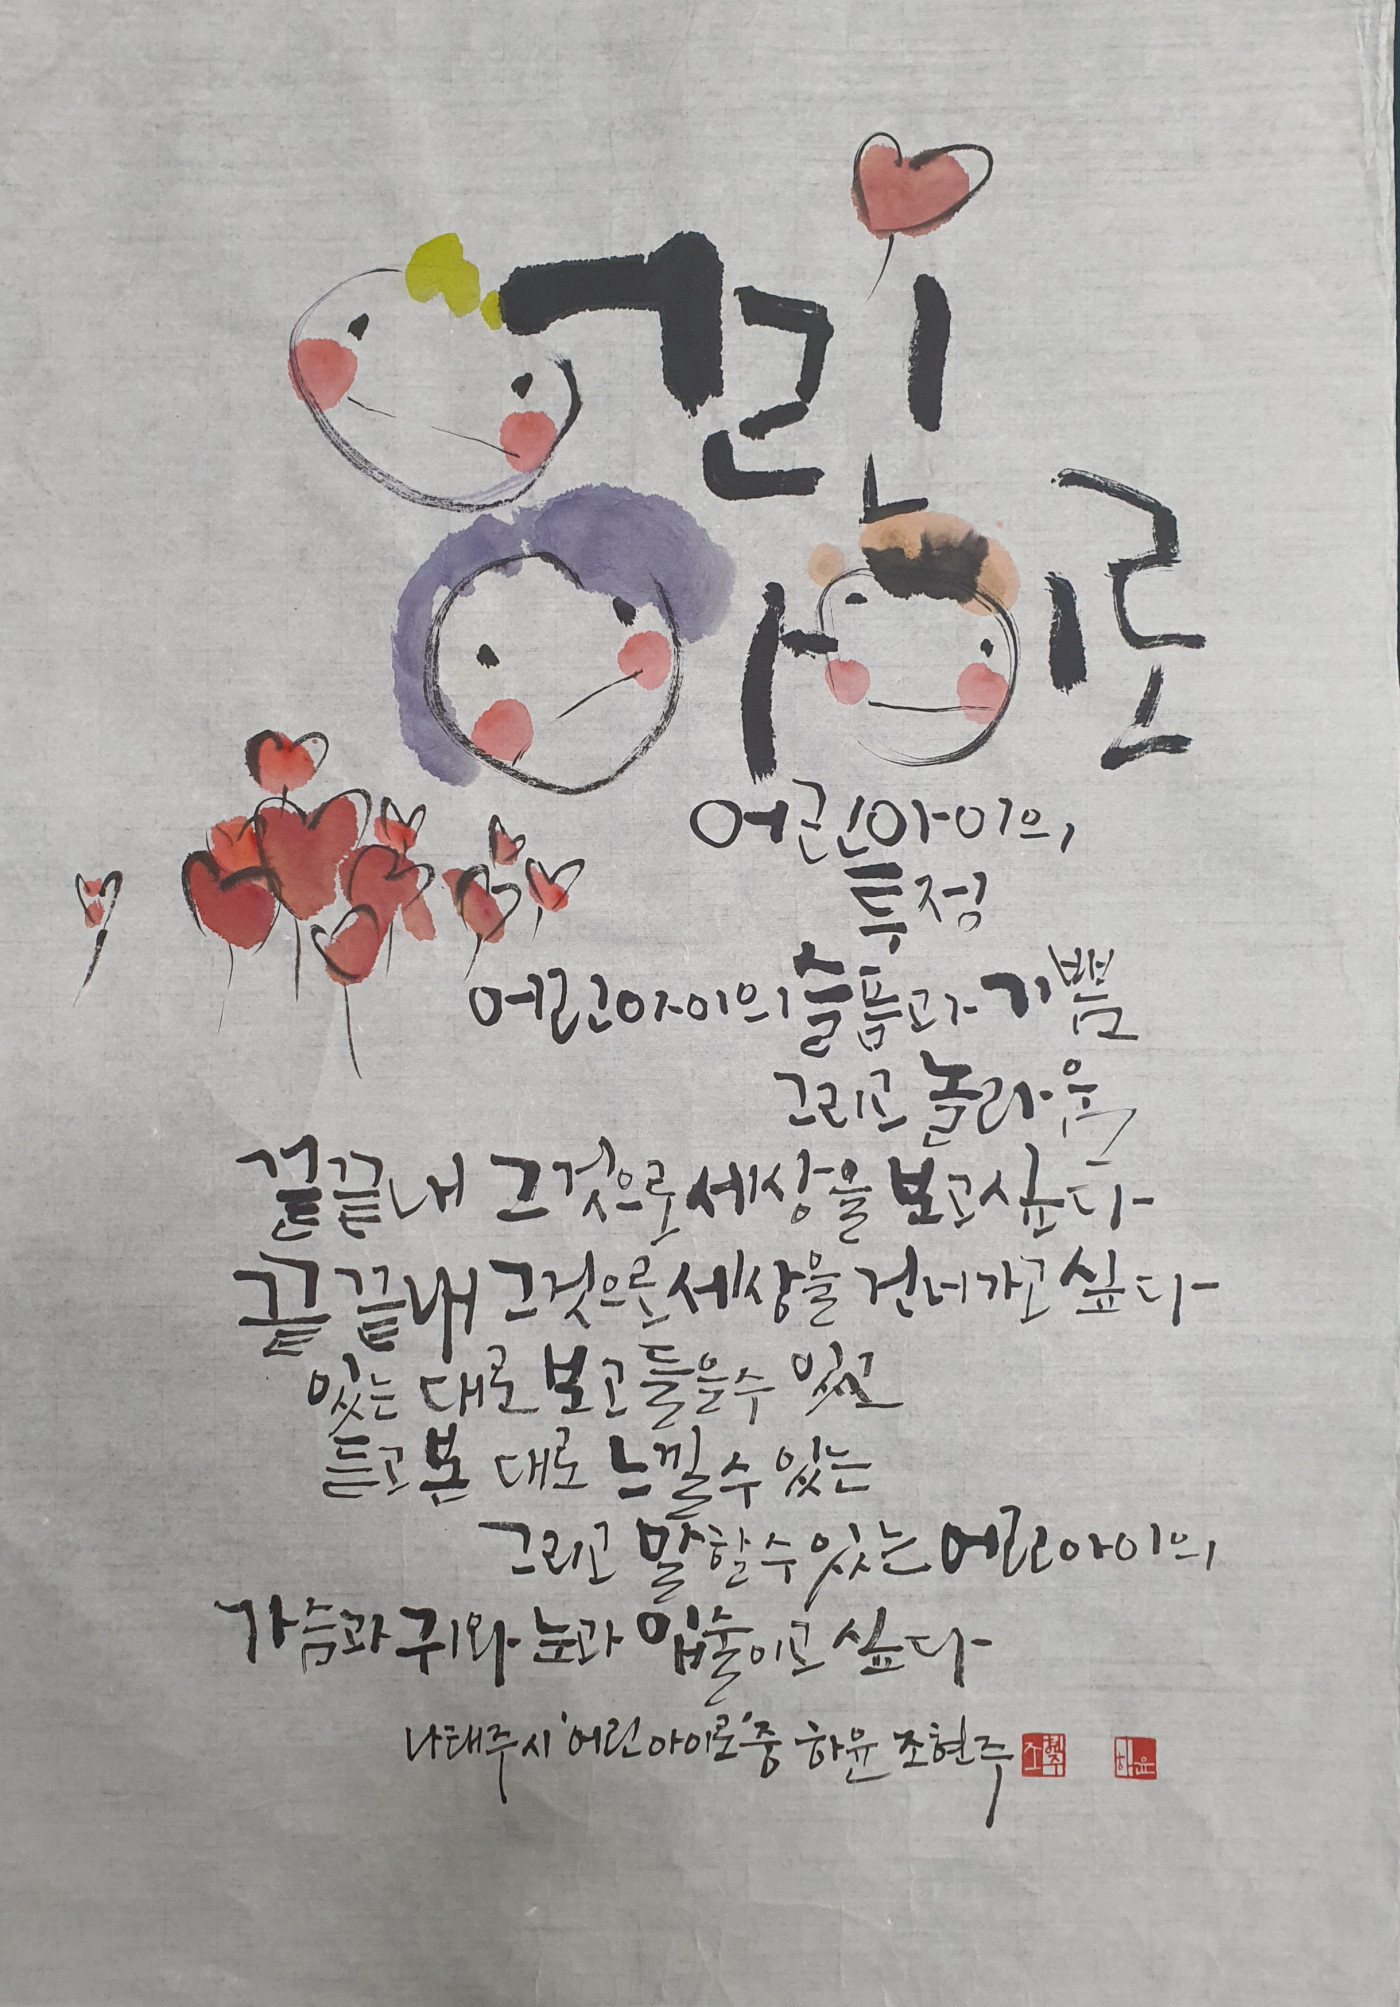 어린
아이로
어린아이의
투정
어린아이의 슬픔과 기쁨
그리고 놀라움
끝끝내 그것으로 세상을 보고 싶다
끝끝내 그것으로 세상을 건너가고 싶다
있는 대로 보고 들을 수 있고
듣고 본 대로 느낄 수 있는
그리고 말할 수 있는 어린아이의
가슴과 귀와 눈과 입술이고 싶다
나태주 시 '어린아이로' 중 하윤 조현주 조현주 하윤